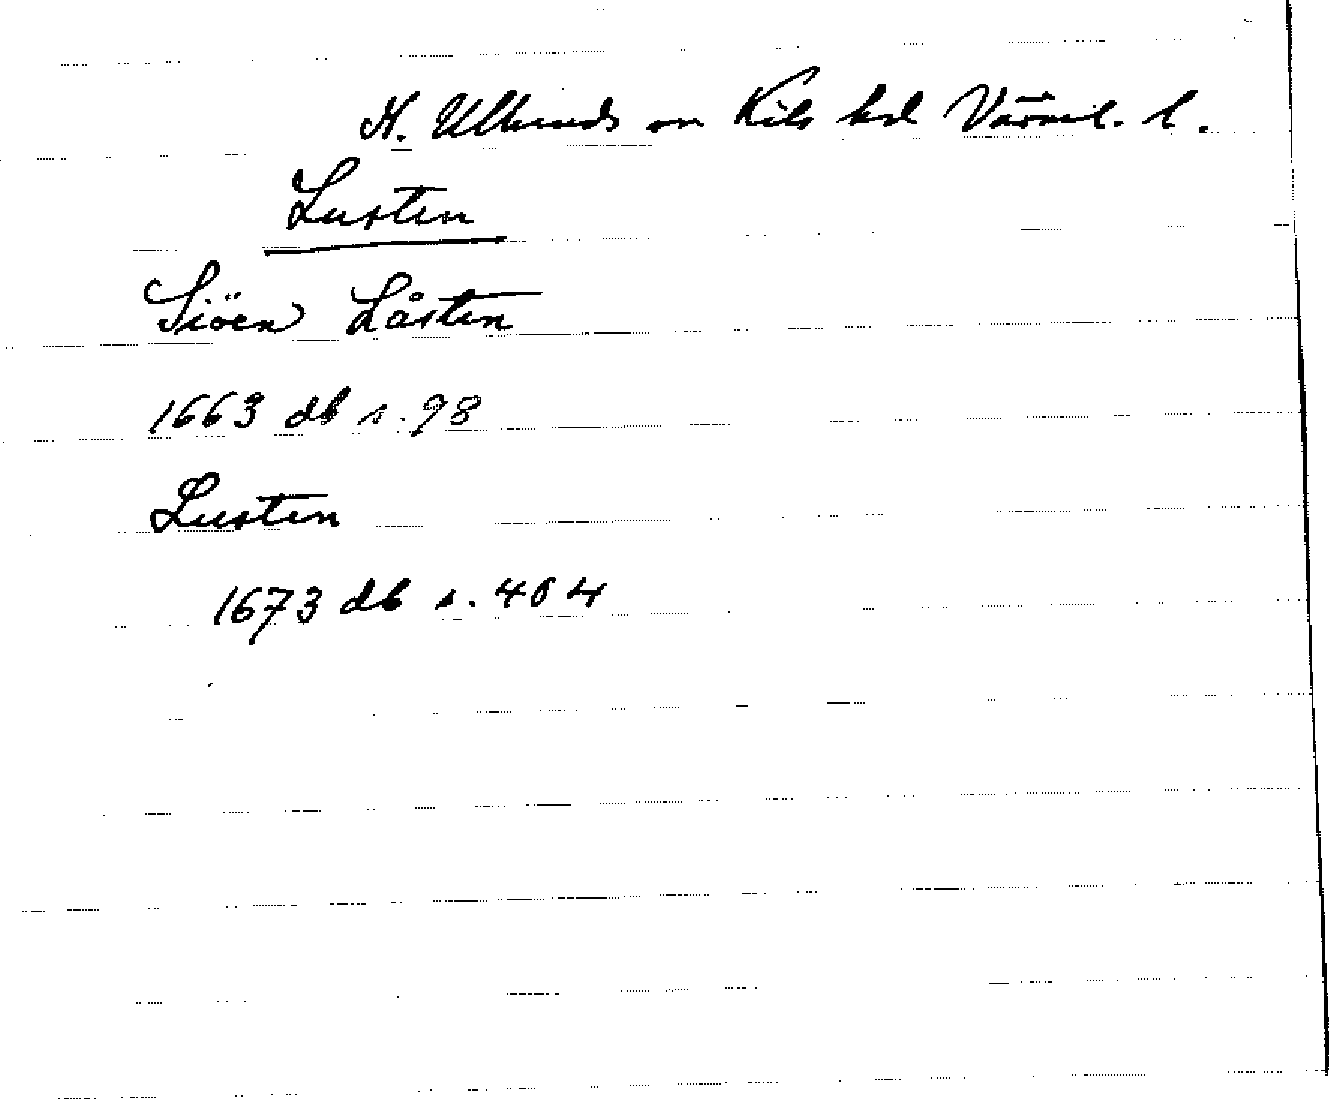 N. Ulleruds sn Kils hd Värml. l.
Lusten
Siöen Låsten
1663 db s. 98
Lusten
1673 db s. 404